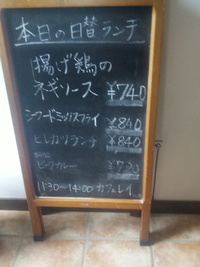 本日の日替ランチ
揚げ鶏の
ネギソース ¥740
シーフードミックスフライ ¥840
ヒレカツランチ ¥840
カレー
11:30〜14:00 カフェレイ